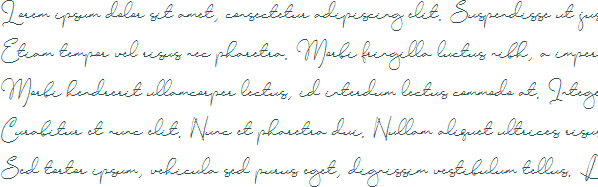 Lorem ipsum dolor sit amet, consectetur adipiscing elit. Suspendisse ut jus
Etiam tempor vel risus nec pharetra. Morbi fringilla luctus nibh, a imper
Morbi hendrerit ullamcorper lectus, id interdum lectus commodo at. Intege
Curabitur et nunc elit. Nunc et pharetra dui. Nullam aliquet ultrices risus
Sed tortor ipsum, vehicula sed purus eget, dignissim vestibulum tellus.